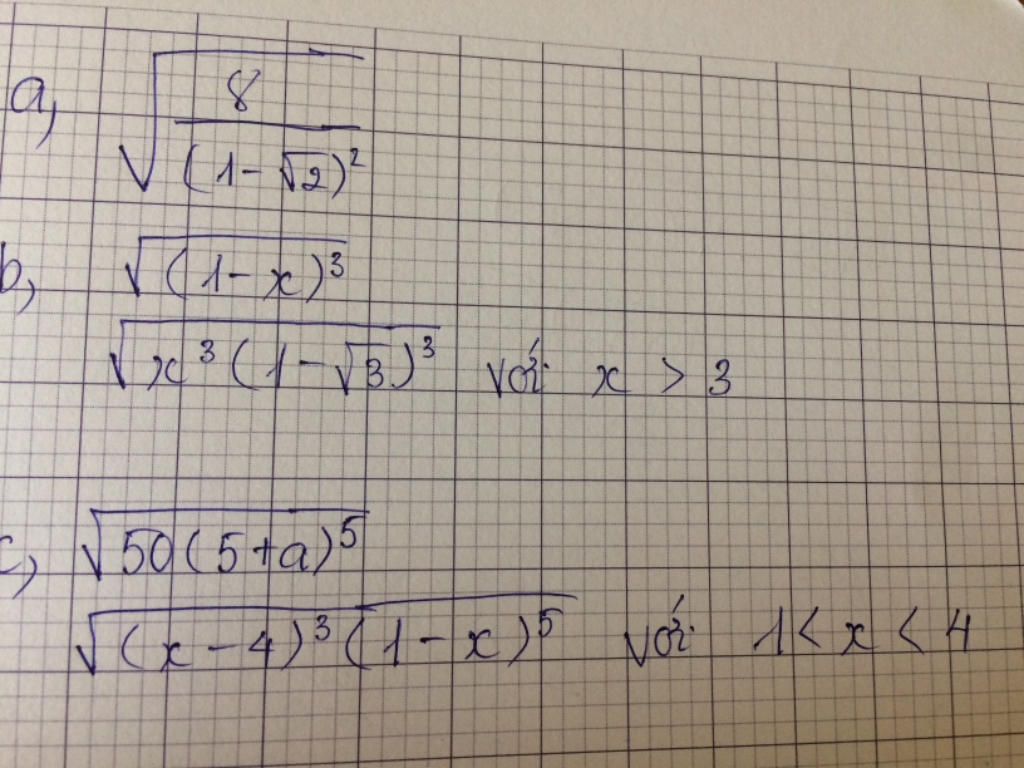 a, √(8/(1-√2)²)
b, √((1-x)³)
√(x³(1-√3)³) với x > 3
c, √(50(5+a)⁵)
√((x-4)³(1-x)⁵) với 1 < x < 4